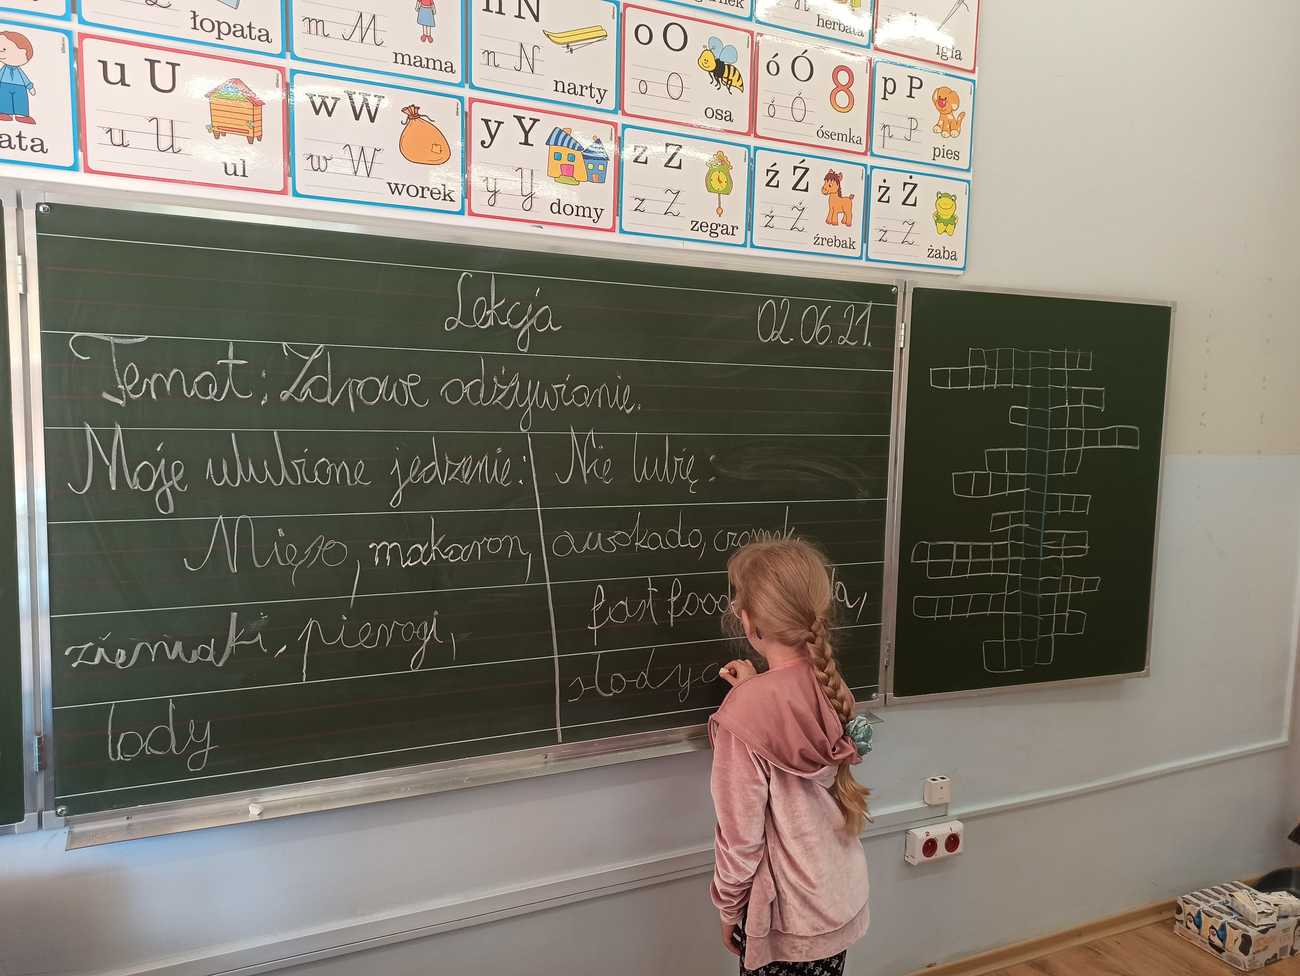 łopata
m M
mama
n N
n N
narty
o O
o O
osa
ó Ó
ó Ó
ósemka
herbata
igła
p P
p P
pies
ata
u U
u U
ul
w W
w W
worek
y Y
y Y
domy
z Z
z Z
zegar
ź Ź
ź Ź
źrebak
ż Ż
ż Ż
żaba
Lekcja
02.06.21.
Temat: Zdrowe odżywianie.
Moje ulubione jedzenie:
Mięso, makaron,
ziemiaki, pierogi,
lody
Nie lubię:
awokado,
fast food
słodyc